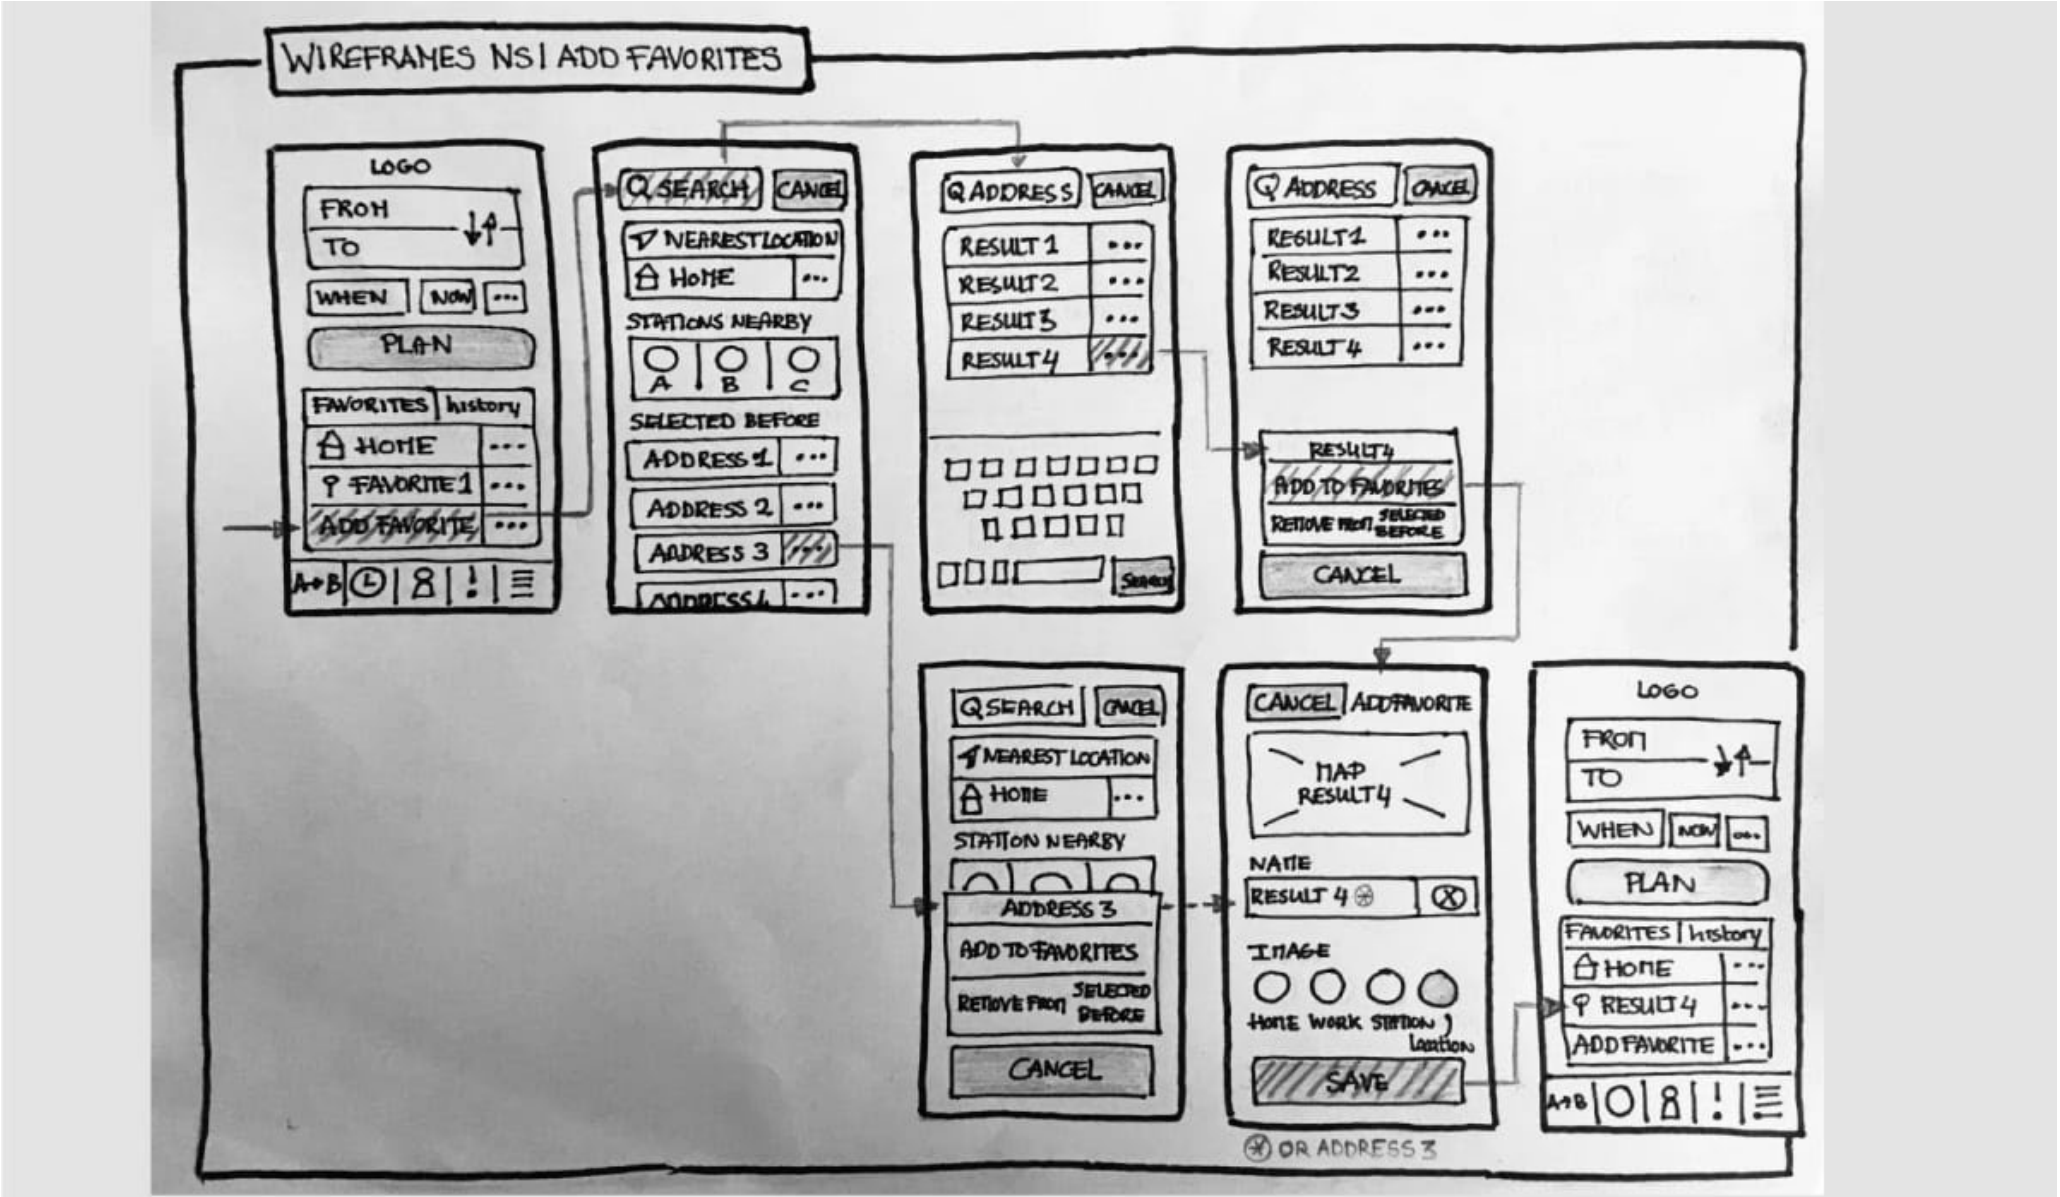 WIREFRAMES NS | ADD FAVORITES
LOGO
FROM
TO
WHEN NOW ...
PLAN
FAVORITES history
HOME ...
FAVORITE 1 ...
ADD FAVORITE ...
A→B !
SEARCH CANCEL
NEAREST LOCATION
HOME ...
STATIONS NEARBY
A B C
SELECTED BEFORE
ADDRESS 1 ...
ADDRESS 2 ...
ADDRESS 3 ...
ADDRESS 4 ...
ADDRESS CANCEL
RESULT 1 ...
RESULT 2 ...
RESULT 3 ...
RESULT 4 ...
SEARCH
ADDRESS CANCEL
RESULT 1 ...
RESULT 2 ...
RESULT 3 ...
RESULT 4 ...
RESULT 4
ADD TO FAVORITES
REMOVE FROM SELECTED
BEFORE
CANCEL
SEARCH CANCEL
NEAREST LOCATION
HOME ...
STATION NEARBY
ADDRESS 3
ADD TO FAVORITES
REMOVE FROM SELECTED
BEFORE
CANCEL
CANCEL ADD FAVORITE
MAP
RESULT 4
NAME
RESULT 4 * X
IMAGE
HOME WORK STATION
location
SAVE
* OR ADDRESS 3
LOGO
FROM
TO
WHEN NOW ...
PLAN
FAVORITES | history
HOME ...
RESULT 4 ...
ADD FAVORITE ...
A→B !